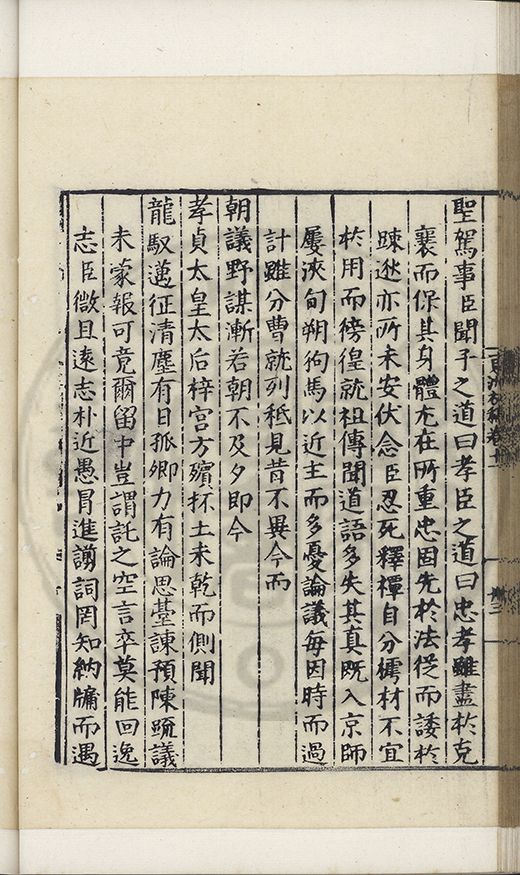 聖駕事臣聞子之道曰孝臣之道曰忠孝雖盡於克
襄而保其身體尤在所重忠固先於法從而諉於
踈逖亦所未安伏念臣忍死釋禫自分樗材不宜
於用而徬徨就祖傳聞道語多失其真既入京師
屢浹旬朔狗馬以近主而多憂論議每因時而過
計雖分曹就列秪見昔不異今而
朝議野謀漸若朝不及夕即今
孝貞太皇太后梓宮方殯抔土未乾而側聞
龍馭邁征清塵有日孤卿力有論思臺諫預陳䟽議
未蒙報可竟爾留中豈謂託之空言卒莫能回逸
志臣微且遠志朴近愚冒進謭詞罔知納牖而遇